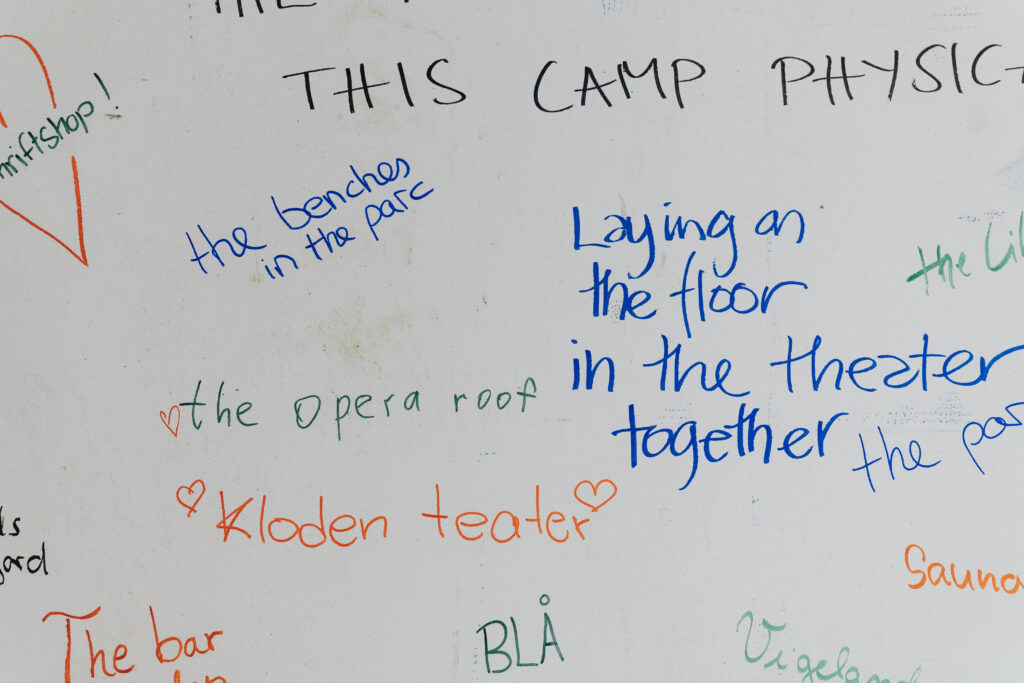 THIS CAMP
thriftshop!
the benches
in the parc
Laying on
the floor
in the theater
together
the opera roof
Kloden teater
Sauna
The bar
BLÅ
Vigeland